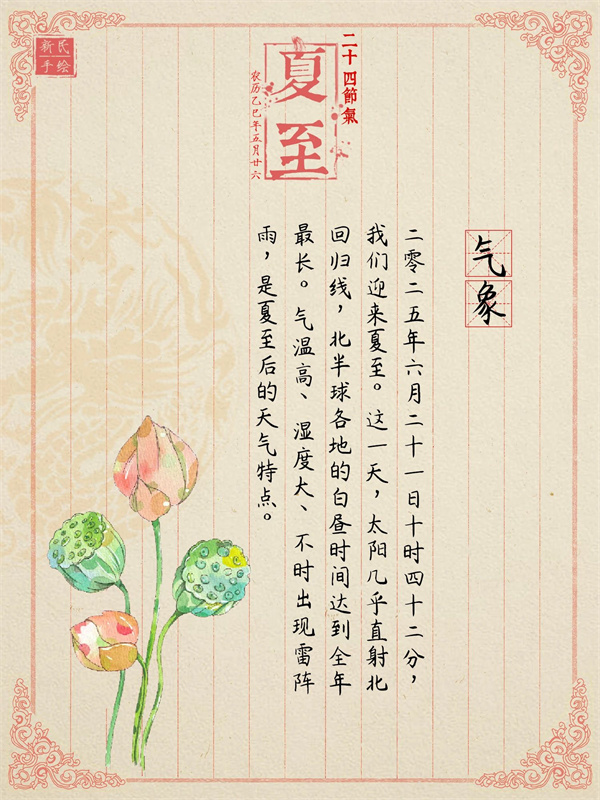 二十四節氣
夏至
农历乙巳年五月廿六
新民
手绘
气象
二零二五年六月二十一日十时四十二分，
我们迎来夏至。这一天，太阳几乎直射北
回归线，北半球各地的白昼时间达到全年
最长。气温高、湿度大、不时出现雷阵
雨，是夏至后的天气特点。